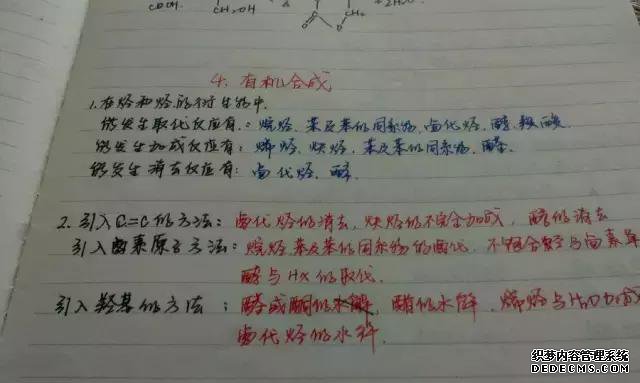 COOH CH₂OH & CH₂ + 2H₂O
4. 有机合成
1. 在烃和烃的衍生物中,
能发生取代反应有:烷烃、苯及苯的同系物、卤代烃、醇、羧酸
能发生加成反应有:烯烃、炔烃、苯及苯的同系物、醛.
能发生消去反应有:卤代烃、醇.
2. 引入C=C的方法:卤代烃的消去,炔烃的不完全加成,醇的消去
引入卤素原子方法:烷烃、苯及苯的同系物的卤代,不饱合烃与卤素单
醇与HX的取代.
引入羟基的方法:酯的水解,烯烃与H₂O加成
卤代烃的水
织梦内容管理系统
DEDECMS.COM